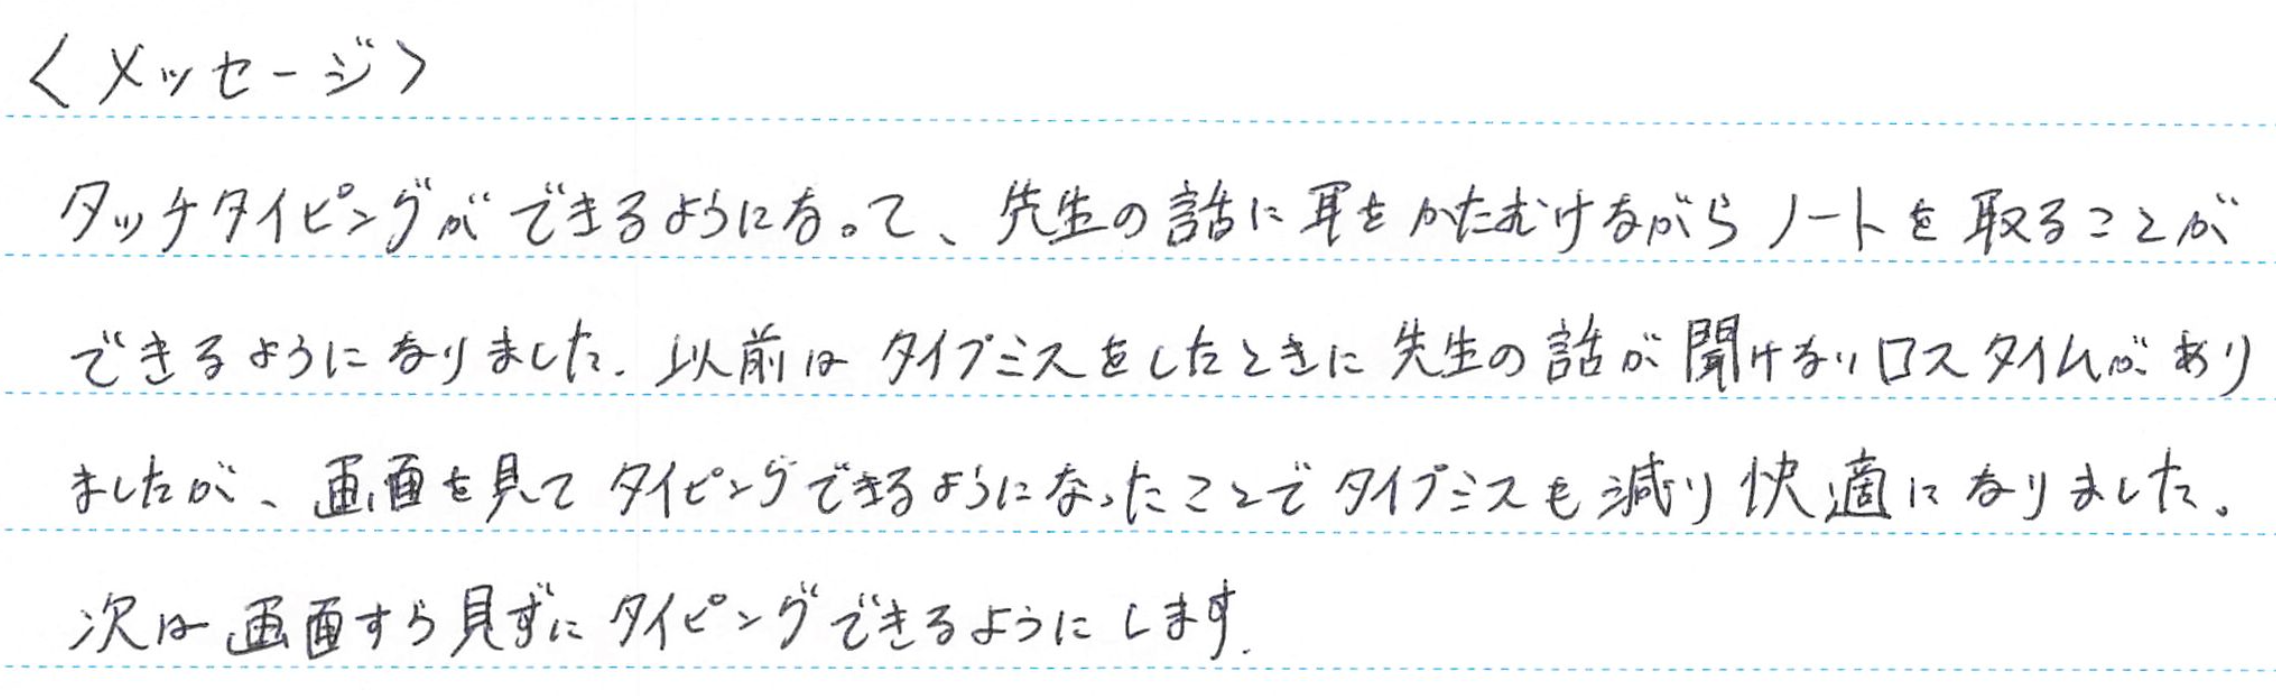 ＜メッセージ＞
タッチタイピングができるようになって、先生の話に耳をかたむけながらノートを取ることが
できるようになりました。以前はタイプミスをしたときに先生の話が聞けないロスタイムがあり
ましたが、画面を見てタイピングできるようになったことでタイプミスも減り快適になりました。
次は画面すら見ずにタイピングできるようにします。